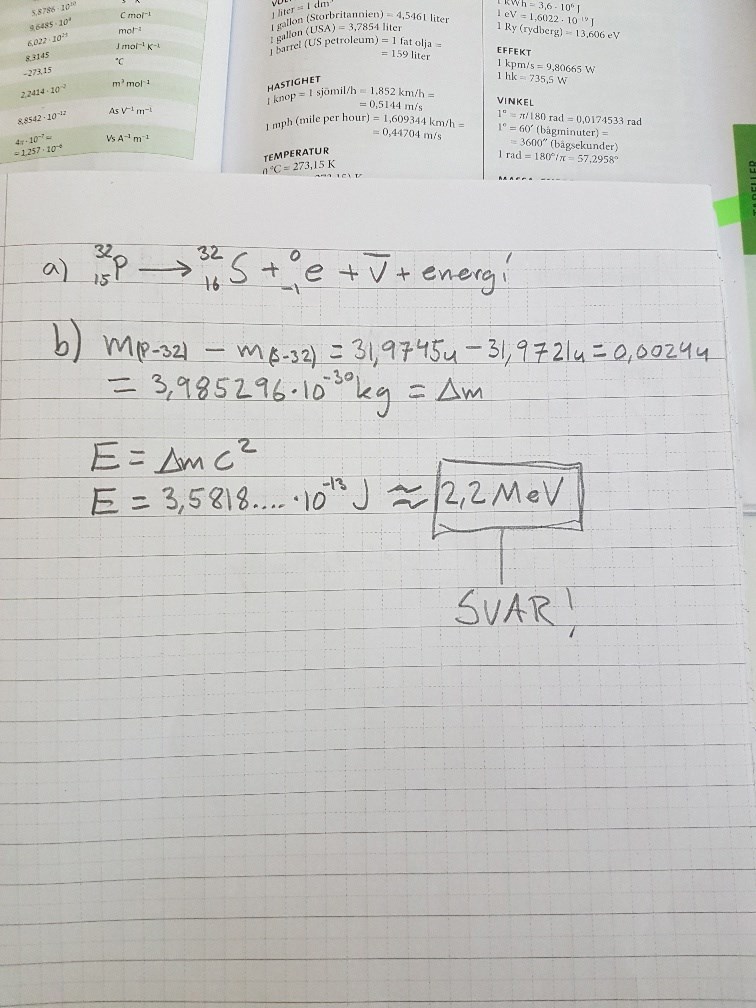 5,8786 · 10¹⁰
9,6485 · 10⁴ C mol⁻¹
6,022 · 10²³ mol⁻¹
8,3145 J mol⁻¹ K⁻¹
-273,15 °C
2,2414 · 10⁻² m³ mol⁻¹
8,8542 · 10⁻¹² As V⁻¹ m⁻¹
4π · 10⁻⁷ = Vs A⁻¹ m⁻¹
= 1,257 · 10⁻⁶
1 liter = 1 dm³
1 gallon (Storbritannien) = 4,5461 liter
1 gallon (USA) = 3,7854 liter
1 barrel (US petroleum) = 1 fat olja =
= 159 liter
HASTIGHET
1 knop = 1 sjömil/h = 1,852 km/h =
= 0,5144 m/s
1 mph (mile per hour) = 1,609344 km/h =
= 0,44704 m/s
TEMPERATUR
0 °C = 273,15 K
1 kWh = 3,6 · 10⁶ J
1 eV = 1,6022 · 10⁻¹⁹ J
1 Ry (rydberg) = 13,606 eV
EFFEKT
1 kpm/s = 9,80665 W
1 hk = 735,5 W
VINKEL
1° = π/180 rad = 0,0174533 rad
1° = 60′ (bågminuter) =
= 3600″ (bågsekunder)
1 rad = 180°/π = 57,2958°
TABELLER
a) ³²₁₅P ⟶ ³²₁₆S + ⁰₋₁e + V̅ + energi
b) m(P-32) − m(S-32) = 31,9745u − 31,9721u = 0,0024u
= 3,985296·10⁻³⁰kg = Δm
E = Δmc²
E = 3,5818....·10⁻¹³ J ≈ 2,2 MeV
SVAR!